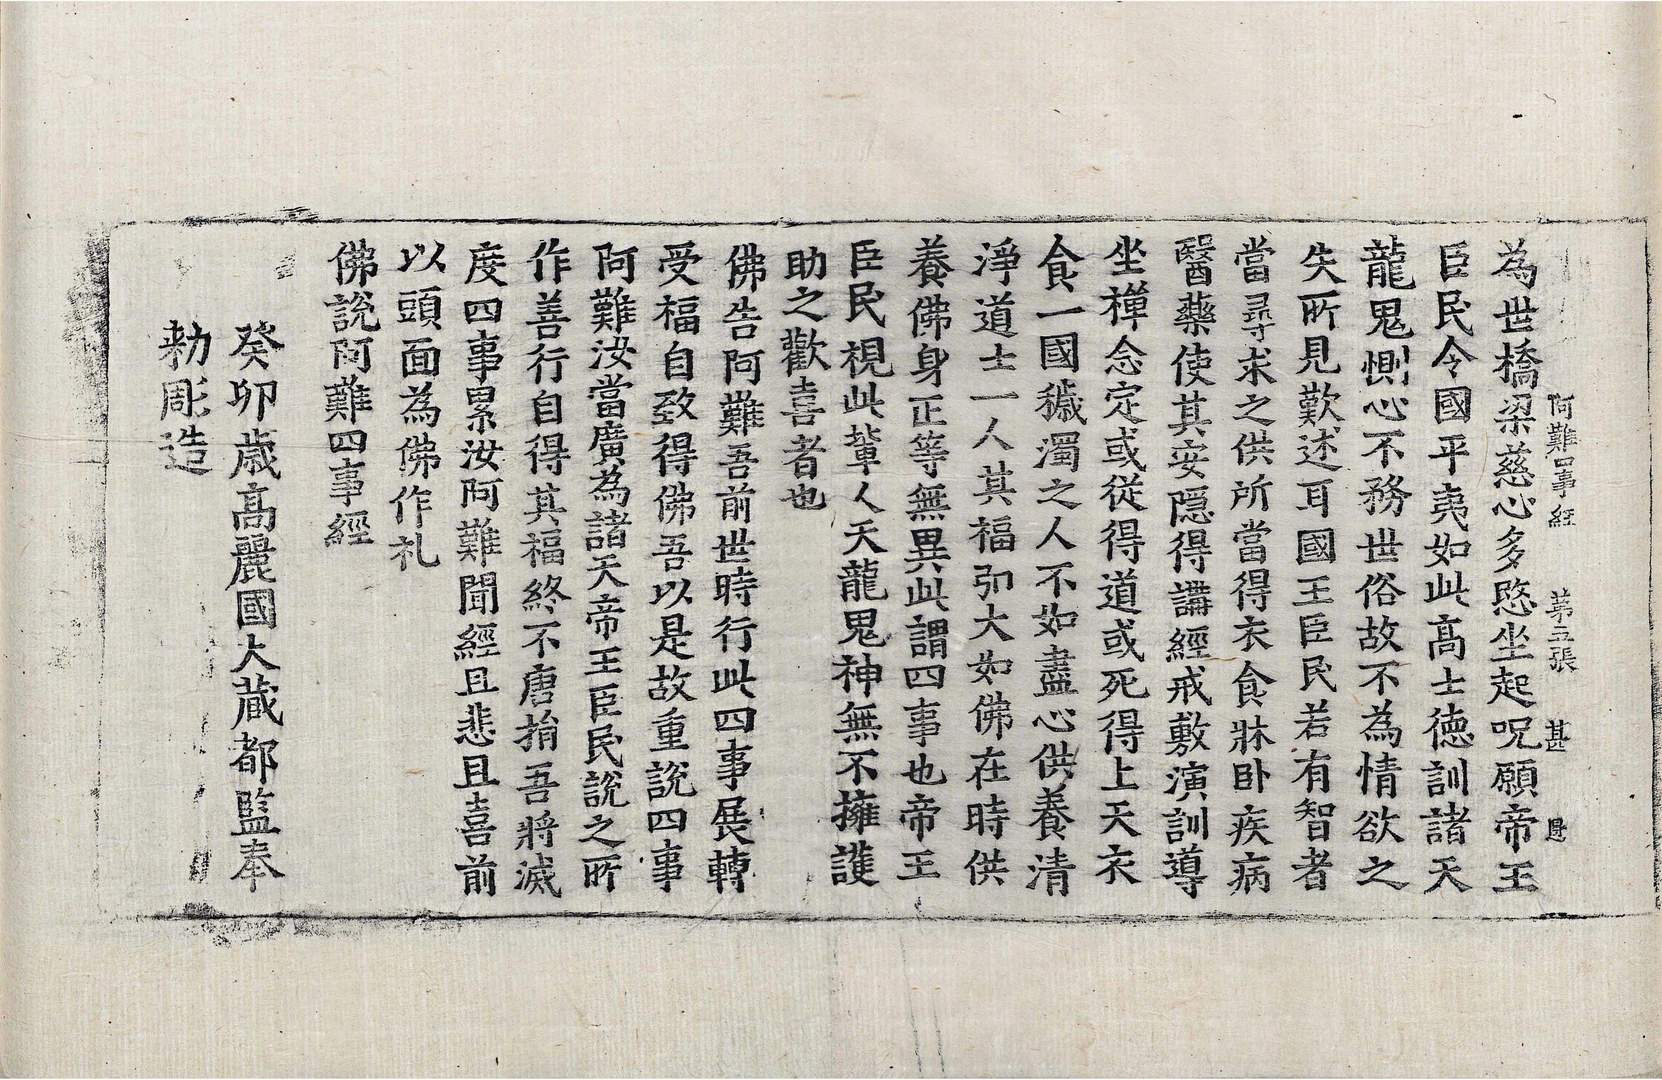 阿難四事經 第五張 甚
為世橋梁慈心多愍坐起呪願帝王
臣民令國平夷如此高士德訓諸天
龍鬼惻心不務世俗故不為情欲之
失所見歎述耳國王臣民若有智者
當尋求之供所當得衣食牀臥疾病
醫藥使其安隱得講經戒敷演訓導
坐禪念定或從得道或死得上天衣
食一國穢濁之人不如盡心供養清
淨道士一人其福弘大如佛在時供
養佛身正等無異此謂四事也帝王
臣民視此輩人天龍鬼神無不擁護
助之歡喜者也
佛告阿難吾前世時行此四事展轉
受福自致得佛吾以是故重說四事
阿難汝當廣為諸天帝王臣民說之所
作善行自得其福終不唐捐吾將滅
度四事累汝阿難聞經且悲且喜前
以頭面為佛作礼
佛說阿難四事經
癸卯歲高麗國大藏都監奉
勅彫造